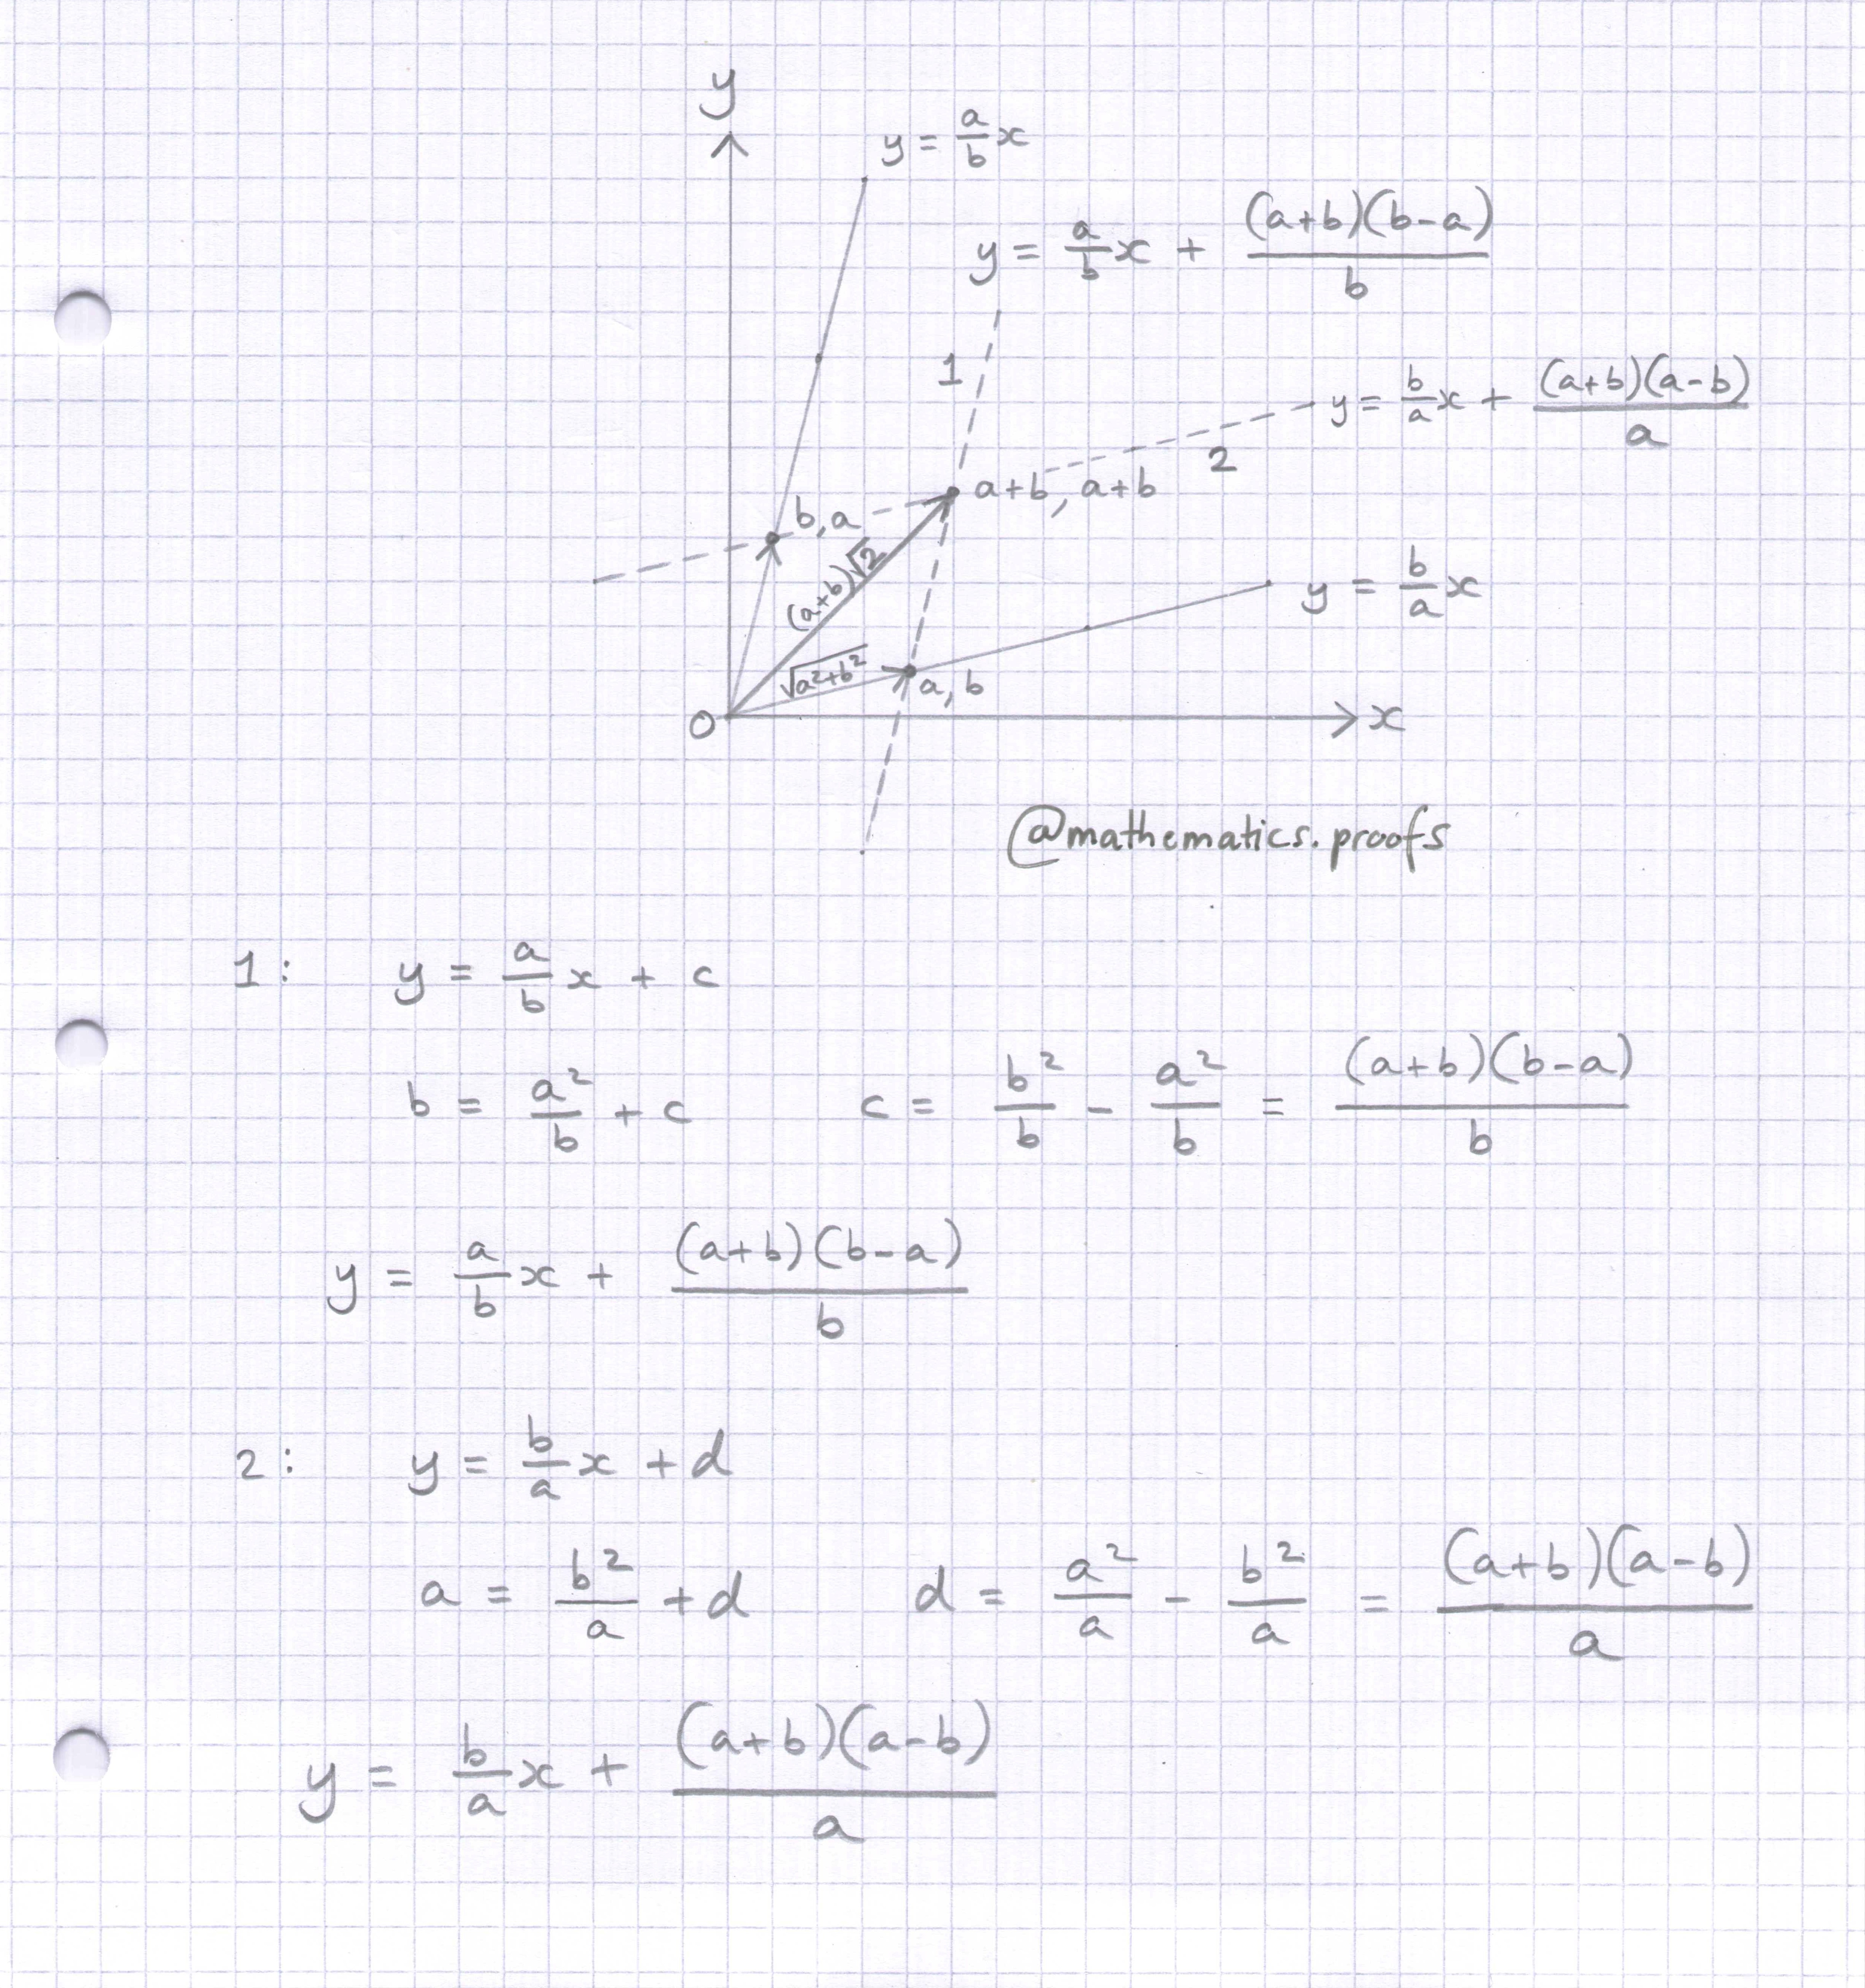 y
y = a/b x
y = a/b x + (a+b)(b-a)/b
1
y = b/a x + (a+b)(a-b)/a
2
a+b, a+b
b,a
(a+b)√2
y = b/a x
√a²+b²
a, b
O
x
@mathematics.proofs
1: y = a/b x + c
b = a²/b + c c = b²/b - a²/b = (a+b)(b-a)/b
y = a/b x + (a+b)(b-a)/b
2: y = b/a x + d
a = b²/a + d d = a²/a - b²/a = (a+b)(a-b)/a
y = b/a x + (a+b)(a-b)/a